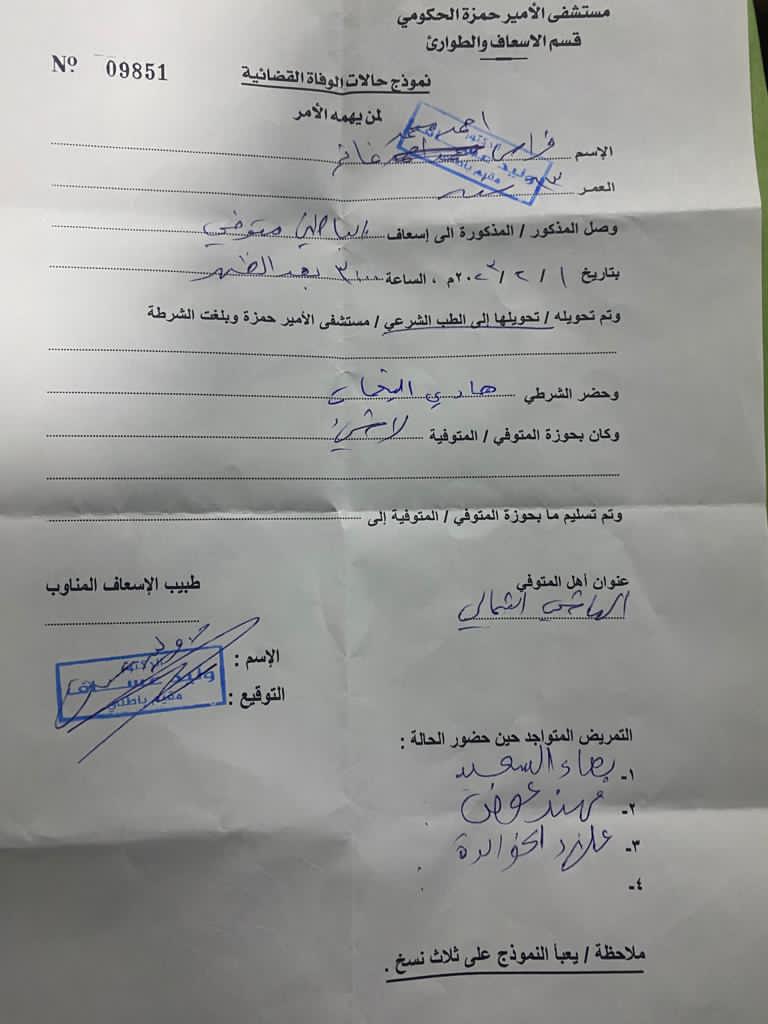 مستشفى الأمير حمزة الحكومي
قسم الاسعاف والطوارئ
Nº 09851
نموذج حالات الوفاة القضائية
لمن يهمه الأمر
الإسم فراس احمد محمد غانم
العمر سنه
وصل المذكور / المذكورة الى إسعاف متوفي
بتاريخ ١ / ٢ / ٢٠٢٣م ، الساعة ٣:٠٠ بعد الظهر
وتم تحويله / تحويلها إلى الطب الشرعي / مستشفى الأمير حمزة وبلغت الشرطة
وحضر الشرطي هادي
وكان بحوزة المتوفي / المتوفية لا شيء
وتم تسليم ما بحوزة المتوفي / المتوفية إلى
عنوان أهل المتوفي
الهاشمي الشمالي
طبيب الإسعاف المناوب
الإسم :
التوقيع :
الدكتور
وليد
مقيم باطني
التمريض المتواجد حين حضور الحالة :
١- بهاء السعيد
٢- مهند عوض
٣- الخوالدة
٤-
ملاحظة / يعبأ النموذج على ثلاث نسخ .